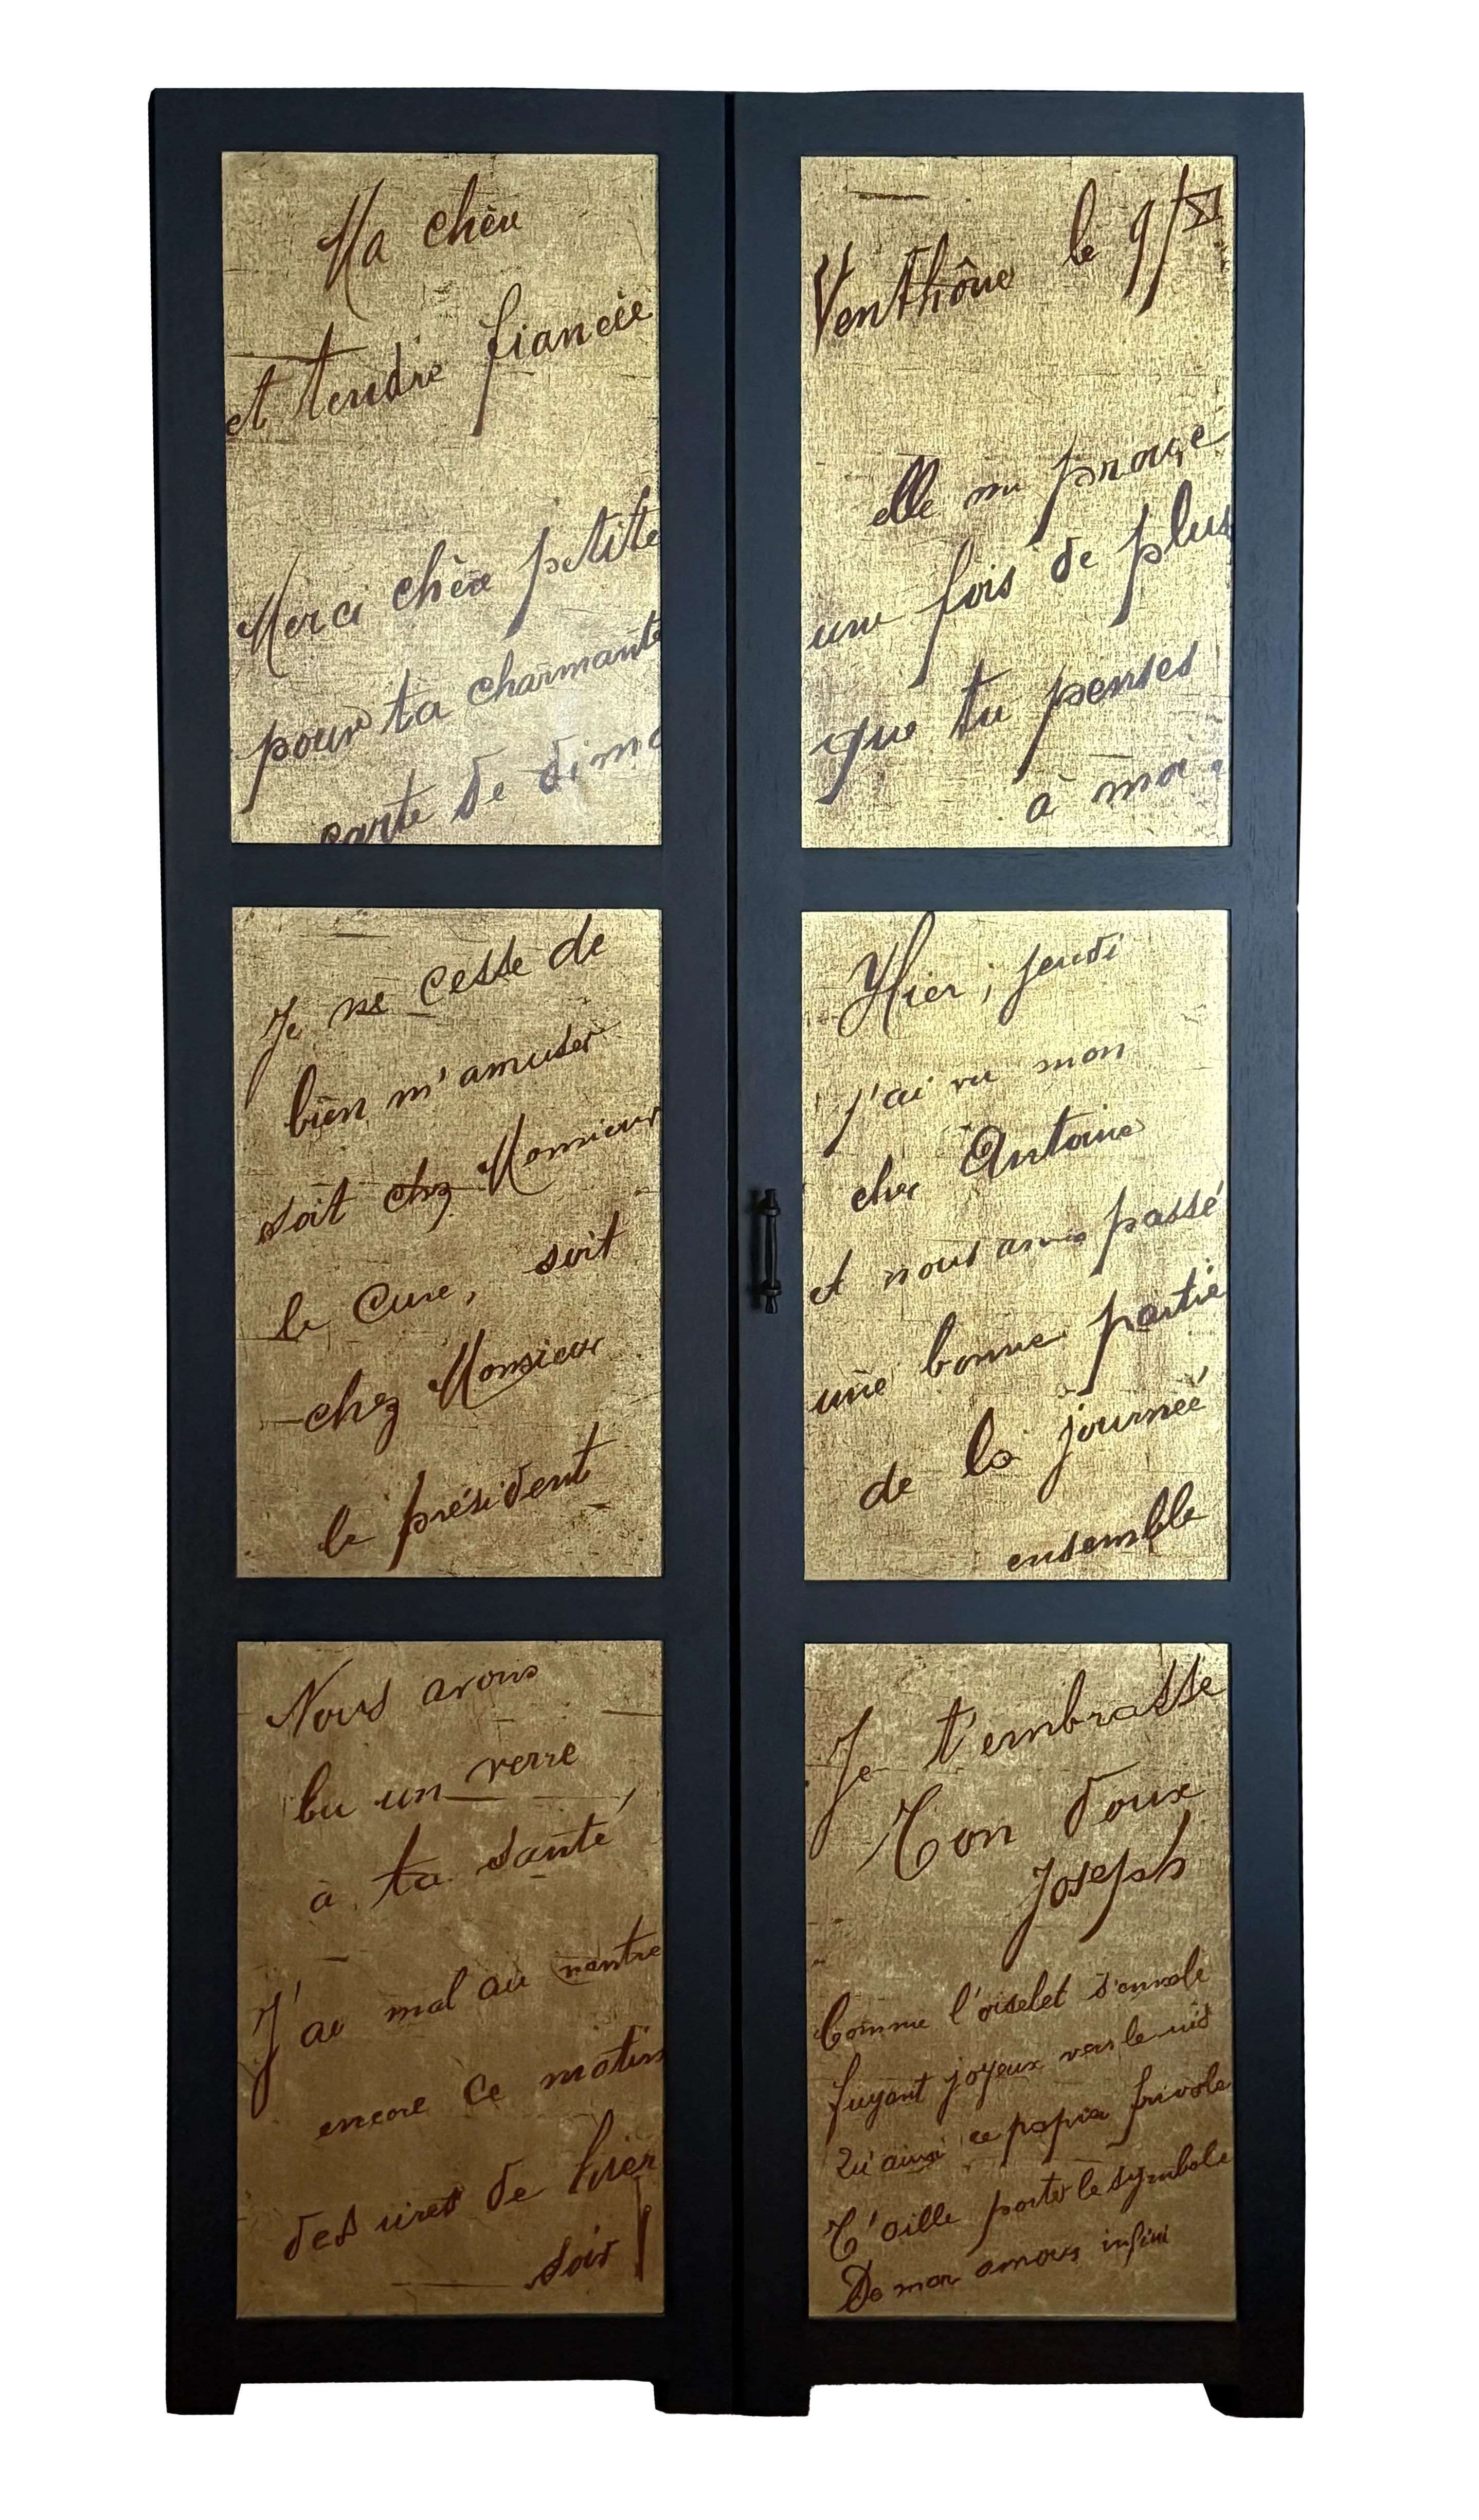 Ma chère
et tendre fiancée
Merci chère petite
pour ta charmante
carte de dima
Venthône le 9/XI
elle me prouve
une fois de plus
que tu penses
à moi.
Je ne cesse de
bien m'amuser
soit chez Monsieur
le Curé, soit
chez Monsieur
le président
Hier, jeudi
j'ai vu mon
cher Antoine
et nous avons passé
une bonne partie
de la journée
ensemble
Nous avons
bu un verre
à ta santé,
J'ai mal au ventre
encore ce matin
des rires de hier
soir!
Je t'embrasse
Ton doux
Joseph
Comme l'oiselet s'envole
fuyant joyeux vers le nid
Qu'ainsi ce papier frivole
T'aille porter le symbole
De mon amour infini